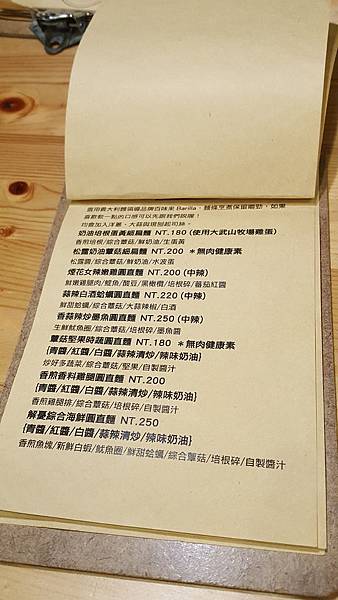 選用義大利麵領導品牌百味來 Barilla，麵條烹煮保留嚼勁，如果
喜歡軟一點的口感可以先跟我們說喔！
均會加入洋蔥、大蒜與現刨起司絲。
奶油培根蛋黃細扁麵 NT.180 (使用大武山牧場雞蛋)
香煎培根/綜合蕈菇/鮮奶油/生蛋黃
松露奶油蕈菇細扁麵 NT.200 ＊無肉健康素
松露醬/綜合蕈菇/鮮奶油/水波蛋
煙花女辣嫩雞圓直麵 NT.200 (中辣)
鮮嫩雞腿肉/鯷魚/酸豆/黑橄欖/培根碎/蕃茄紅醬
蒜辣白酒蛤蠣圓直麵 NT.220 (中辣)
鮮甜蛤蠣/綜合蕈菇/大蒜辣椒/白酒
香蒜辣炒墨魚圓直麵 NT.250 (中辣)
生鮮魷魚圈/綜合蕈菇/培根碎/墨魚醬
蕈菇堅果時蔬圓直麵 NT.180 ＊無肉健康素
{青醬/紅醬/白醬/蒜辣清炒/辣味奶油}
炒好多蔬菜/綜合蕈菇/堅果/自製醬汁
香煎香料雞腿圓直麵 NT.200
{青醬/紅醬/白醬/蒜辣清炒/辣味奶油}
香煎雞腿排/綜合蕈菇/培根碎/自製醬汁
解憂綜合海鮮圓直麵 NT.250
{青醬/紅醬/白醬/蒜辣清炒/辣味奶油}
香煎魚塊/新鮮白蝦/魷魚圈/鮮甜蛤蠣/綜合蕈菇/培根碎/自製醬汁